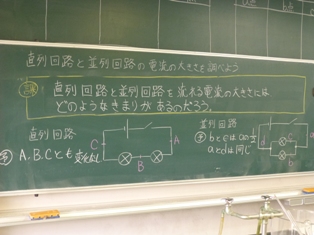 直列回路と並列回路の電流の大きさを調べよう
課 直列回路と並列回路を流れる電流の大きさには
どのようなきまりがあるのだろう。
直列回路
予 A.B.Cとも変化なし
C
A
B
並列回路
予 bとcはaの1/2
aとdは同じ
d
c
b
a